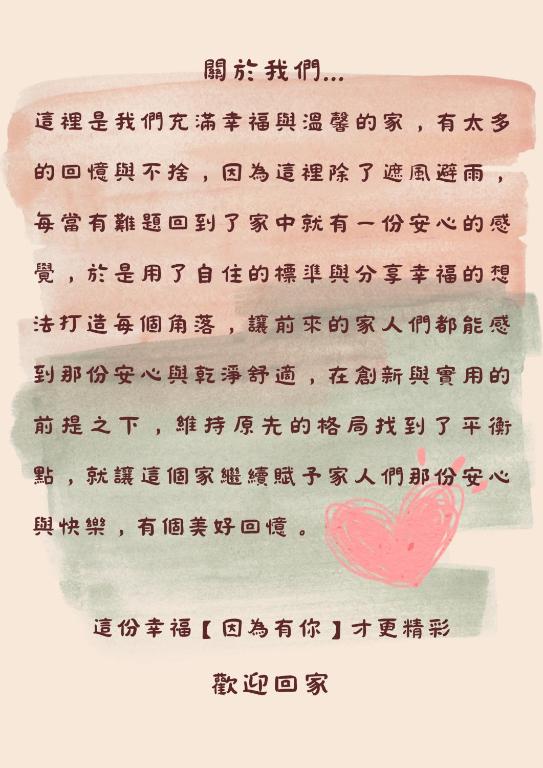 關於我們...
這裡是我們充滿幸福與溫馨的家，有太多
的回憶與不捨，因為這裡除了遮風避雨，
每當有難題回到了家中就有一份安心的感
覺，於是用了自住的標準與分享幸福的想
法打造每個角落，讓前來的家人們都能感
到那份安心與乾淨舒適，在創新與實用的
前提之下，維持原先的格局找到了平衡
點，就讓這個家繼續賦予家人們那份安心
與快樂，有個美好回憶。
這份幸福【因為有你】才更精彩
歡迎回家